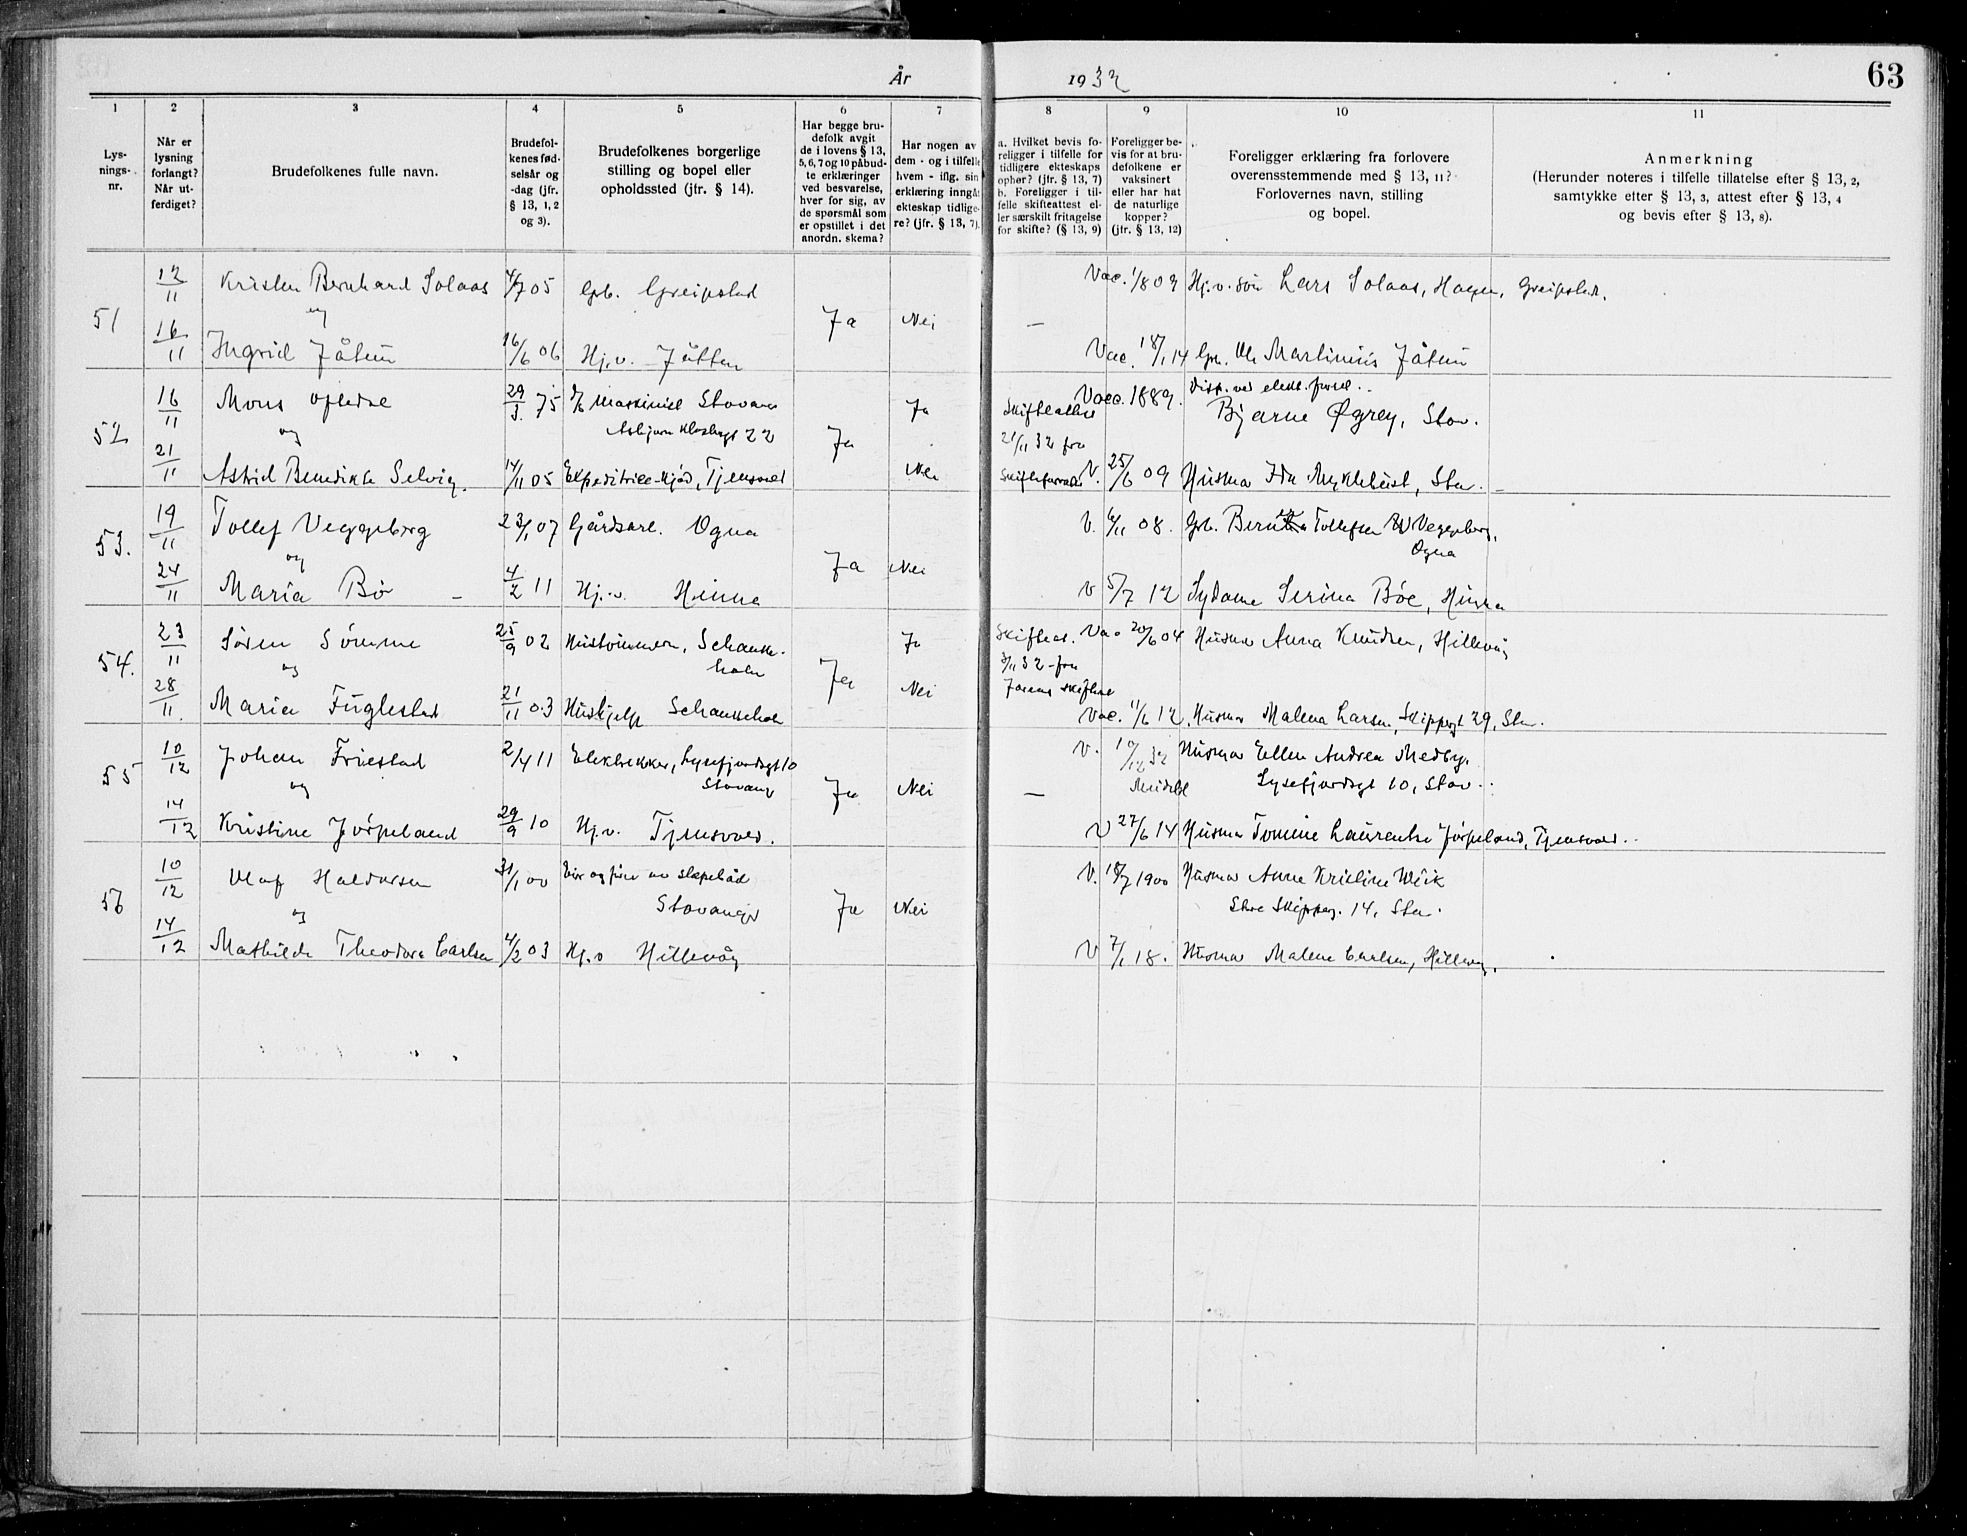 År 1932
63
1 2 3 4 5 6 7 8 9 10 11
Lys-
nings-
nr.
Når er
lysning
forlangt?
Når ut-
ferdiget?
Brudefolkenes fulle navn.
Brudefol-
kenes fød-
selsår og
-dag (jfr.
§ 13, 1, 2
og 3).
Brudefolkenes borgerlige
stilling og bopel eller
opholdssted (jfr. § 14).
Har begge bru-
defolk avgit
de i lovens § 13,
5, 6, 7 og 10 påbud-
te erklæringer
ved besvarelse,
hver for sig, av
de spørsmål som
er opstillet i det
anordn. skema?
Har nogen av
dem - og i tilfelle
hvem - iflg. sin
erklæring inngåt
ekteskap tidlige-
re? (jfr. § 13, 7).
a. Hvilket bevis fo-
religger i tilfelle for
tidligere ekteskaps
ophør? (jfr. § 13, 7)
b. Foreligger i til-
felle skifteattest el-
ler særskilt fritagelse
for skifte? (§ 13, 9)
Foreligger be-
vis for at bru-
defolkene er
vaksinert
eller har hat
de naturlige
kopper?
(jfr. § 13, 12)
Foreligger erklæring fra forlovere
overensstemmende med § 13, 11?
Forlovernes navn, stilling
og bopel.
Anmerkning
(Herunder noteres i tilfelle tillatelse efter § 13, 2,
samtykke efter § 13, 3, attest efter § 13, 4
og bevis efter § 13, 8).
12/11 Kristen Bernhard Solaas 4/7 05 Grb. Greipstad Vac. 1/8 09 Hj.v. søn Lars Solaas, Hagen, Greipstad.
51 og Ja Nei —
16/11 Ingrid Jåtun 16/6 06 Hj.v. Jåtten Vac. 18/1 14 Grb. Ole Martinius Jåtun
16/11 Mons Opedal 29/3 75 Maskinist Stavanger Ja Skifteattest Vacc. 1889. Disp. ved elekt. forret.
Bjarne Øgrey, Stav.
52 og Asbjørn Klostersgt 22 Ja 21/11 32 fra
21/11 Astrid Benedikte Selvig. 14/11 05 Ekspeditrise-Kjød, Tjensvold Nei Skifteforvalt. V. 25/6 09 Husmor Ida Myklebust, Stav. —
19/11 Tollef Veggeberg 23/1 07 Gårdsarb. Ogna V. 6/11 08. Grb. Tollefsen Veggeberg,
Ogna
53. og Ja Nei
24/11 Maria Bø — 4/2 11 Hj.v. Hinna V 5/7 12 Sydame Serina Bøe, Hinna
23/11 Søren Sømme 25/9 02 Hustømmerm, Schanke- Ja Skifteat. Vac 20/6 04 Husmor Anna Knudsen, Hillevåg
holm
54. og Ja 3/11 32 - fra
28/11. Maria Fuglestad 21/11 03 Hushjelp Schankeholm Nei Jærens skifteret
Vac. 11/6 12. Husmor Malena Larsen, Skipperg 29, Stav.
10/12 Johan Friestad 2/4 11 Elektriker, Lysefjordsgt 10 V. 10/12 32 Husmor Ellen Andrea Medby,
Stavang Lysefjordsgt 10, Stav.
55 og Ja Nei —
14/12 Kristine Jørpeland 29/9 10 Hj.v. Tjensvold. V 27/6 14 Husmor Tomine Laurentse Jørpeland, Tjensvold.
10/12 Olaf Haldorsen 31/1 00 Eier og fører av slepebåd V. 18/7 1900 Husmor Anne Kristine Wiik
Stavanger Store Skipperg. 14, Stav.
56 og Ja Nei
14/12 Mathilde Theodora Carlsen 4/2 03 Hj.v Hillevåg V 7/1 18. Husmor Malene Carlsen, Hillevåg.